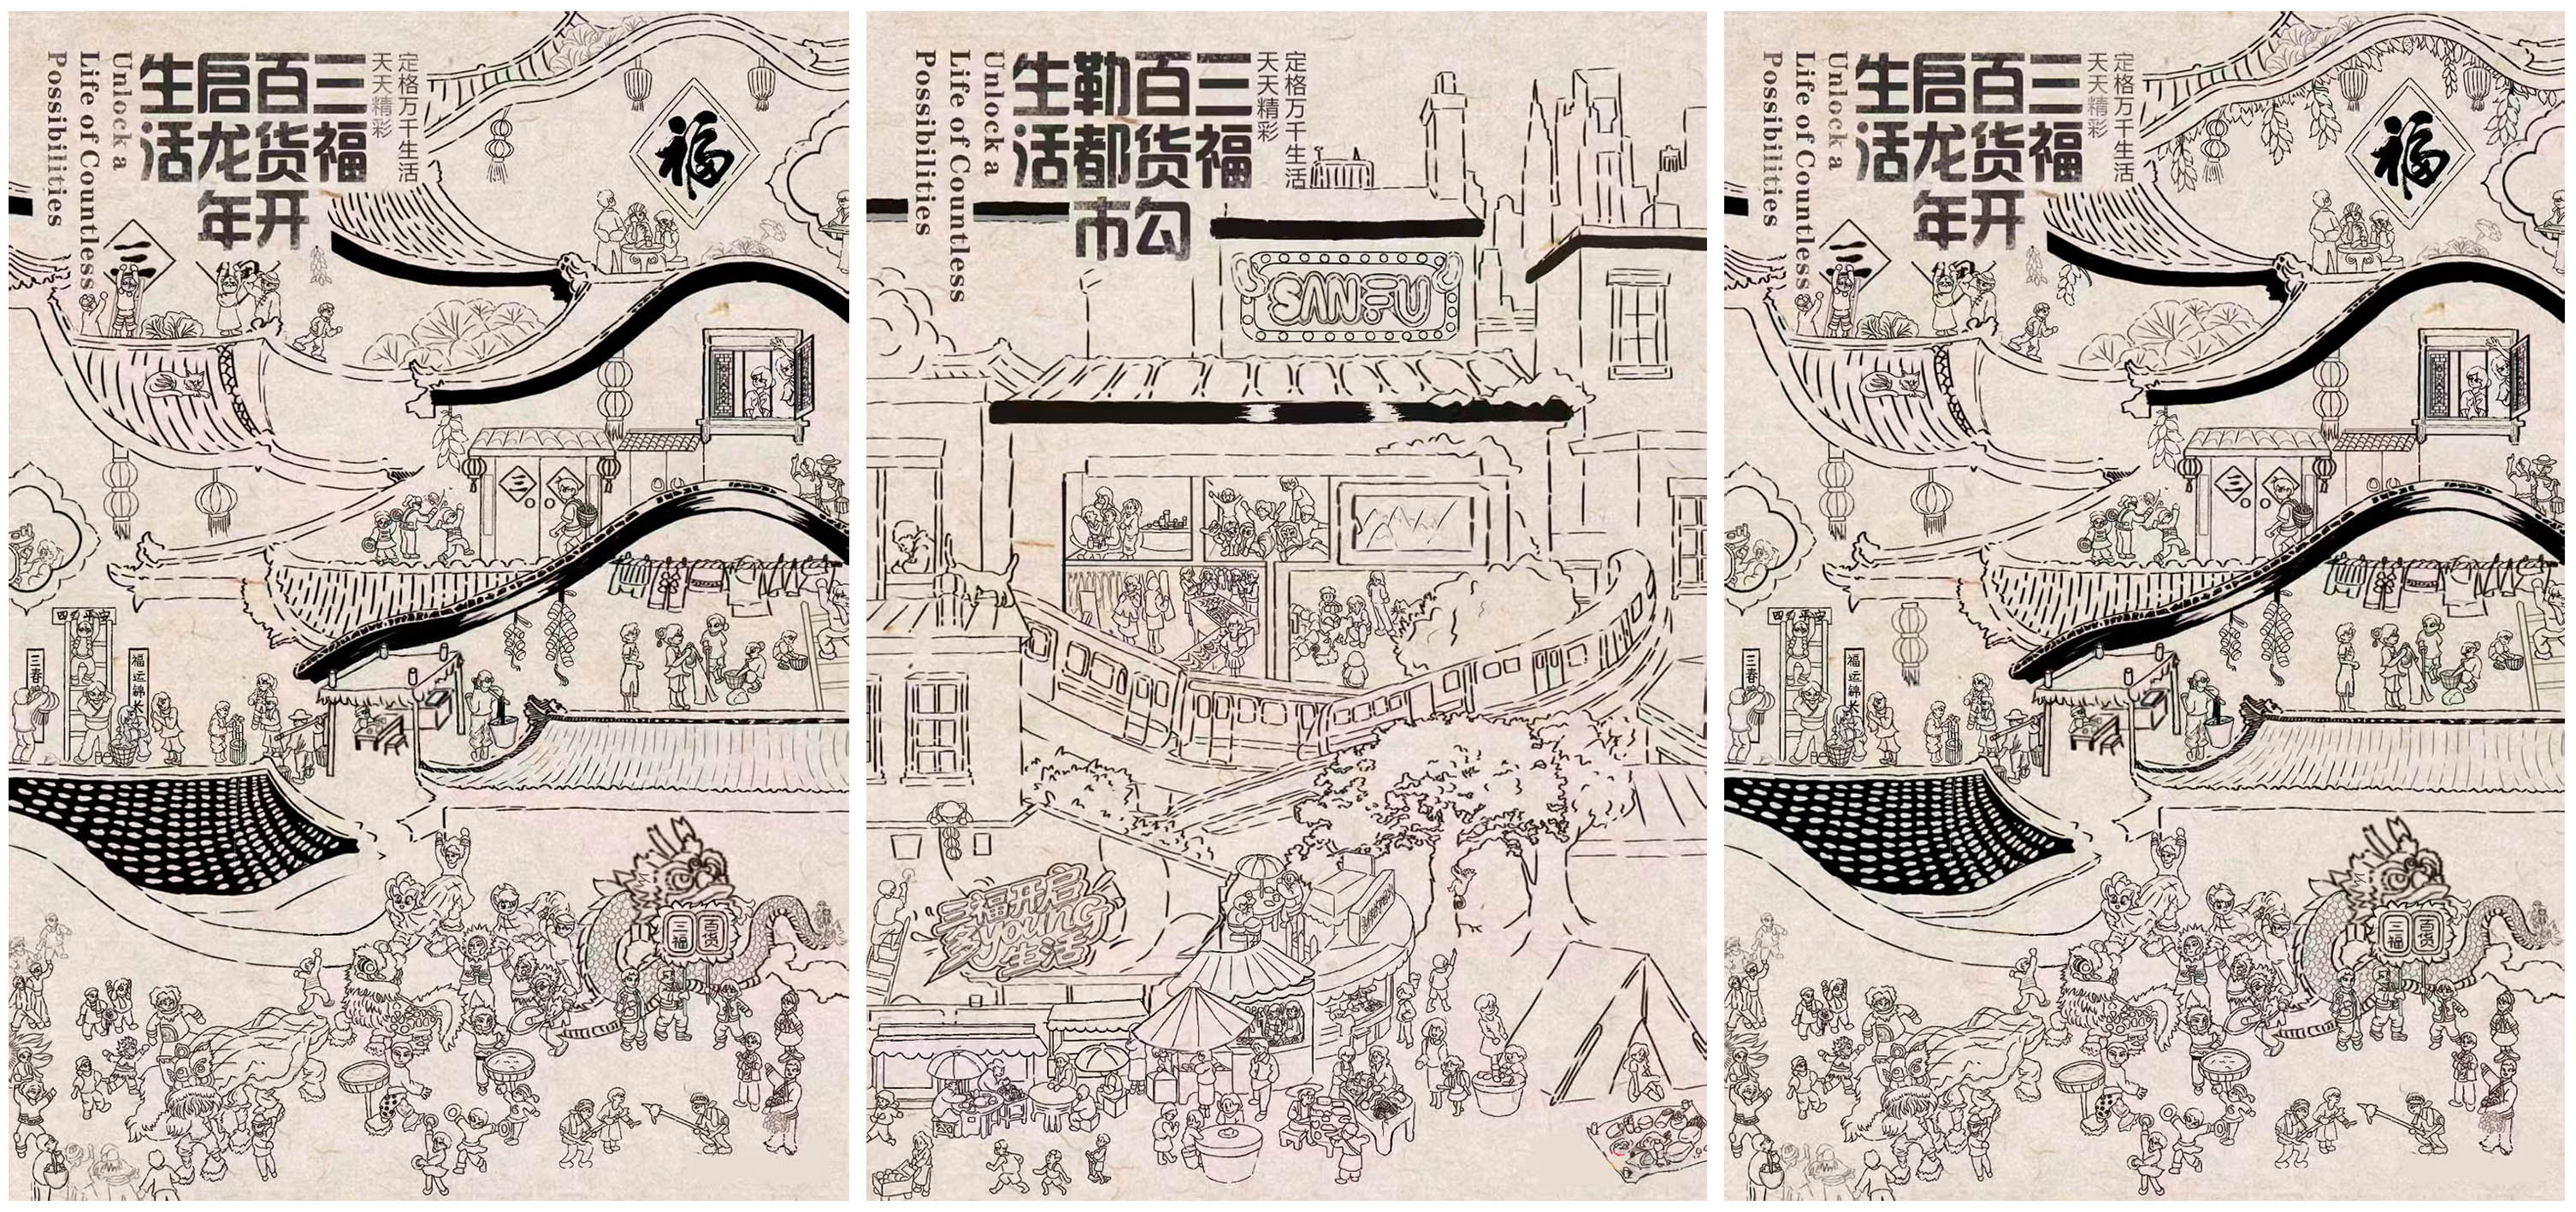 定格万千生活
天天精彩
三福
百货开
启龙年
生活
Unlock a
Life of Countless
Possibilities
福
三
三
四季平安
三春
福运绵长
三福
百货
定格万千生活
天天精彩
三福
百货勾
勒都市
生活
Unlock a
Life of Countless
Possibilities
SANFU
三福开启
多young
生活
定格万千生活
天天精彩
三福
百货开
启龙年
生活
Unlock a
Life of Countless
Possibilities
福
三
三
四季平安
三春
福运绵长
三福
百货